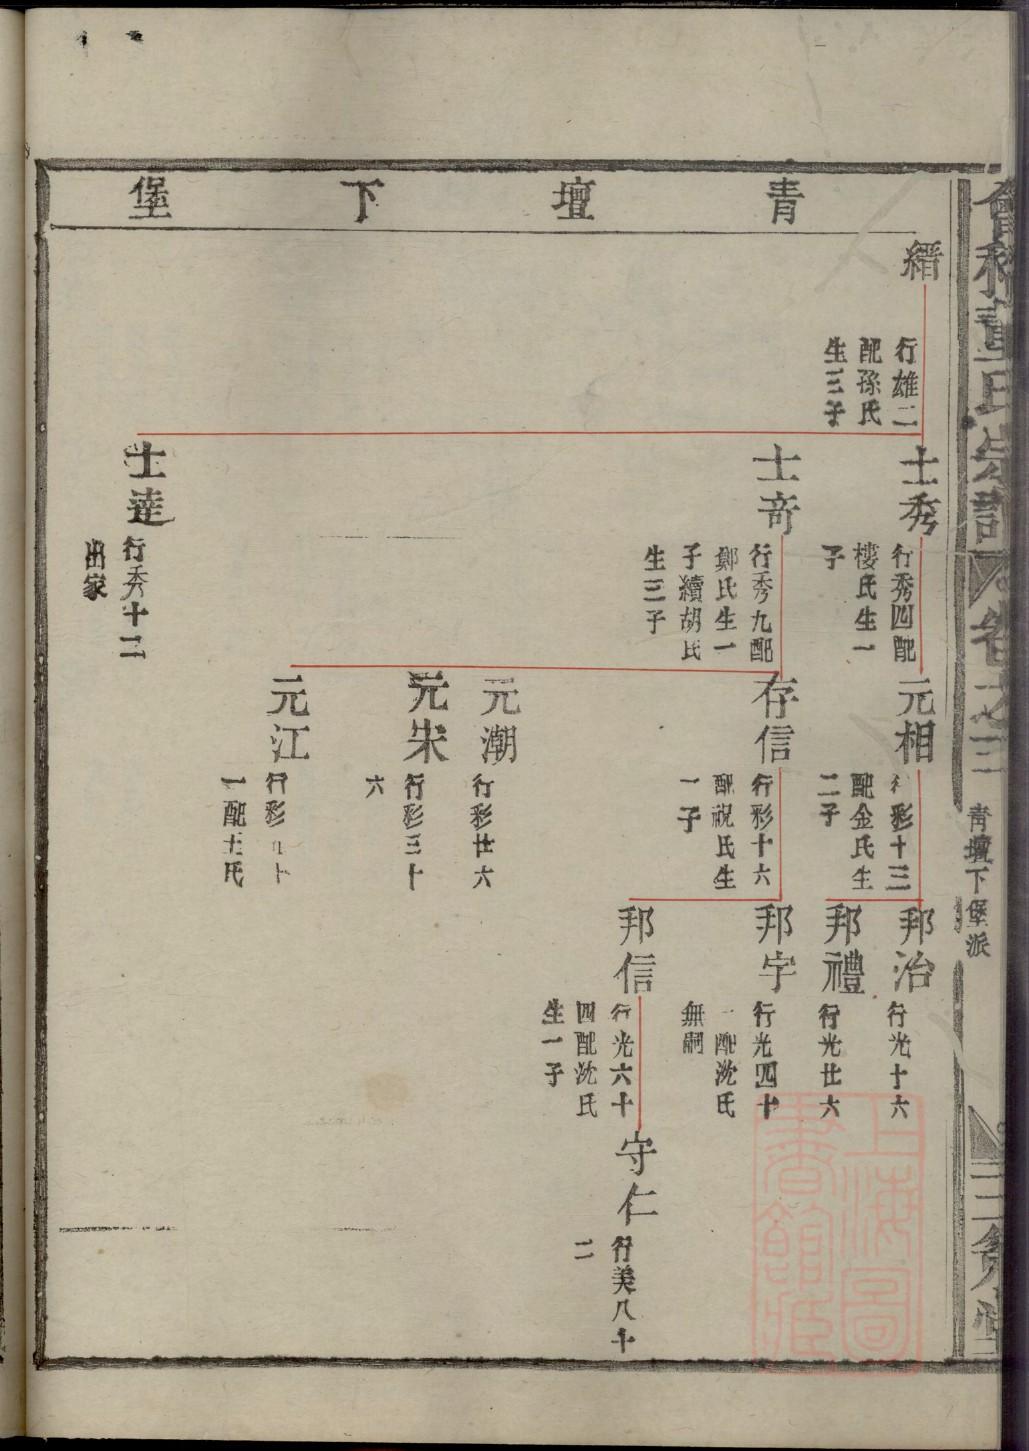 青壇下堡
縉
行雄二
配孫氏
生三子
士秀
行秀四配
樓氏生一
子
士奇
行秀九配
鄭氏生一
子續胡氏
生三子
士達
行秀十二
出家
元相
行彩十三
配金氏生
二子
存信
行彩十六
配祝氏生
一子
元潮
行彩廿六
元宋
行彩三十
六
元江
行彩
一配王氏
邦治
行光十六
邦禮
行光廿六
邦宇
行光四十
一配沈氏
無嗣
邦信
行光六十
四配沈氏
生一子
守仁
行美八十
二
會稽董氏宗譜
卷之三
青壇下堡派
上海圖書館藏